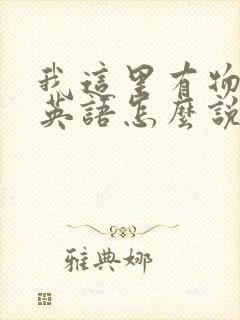 我這里有物
英語怎麼說
雅典娜